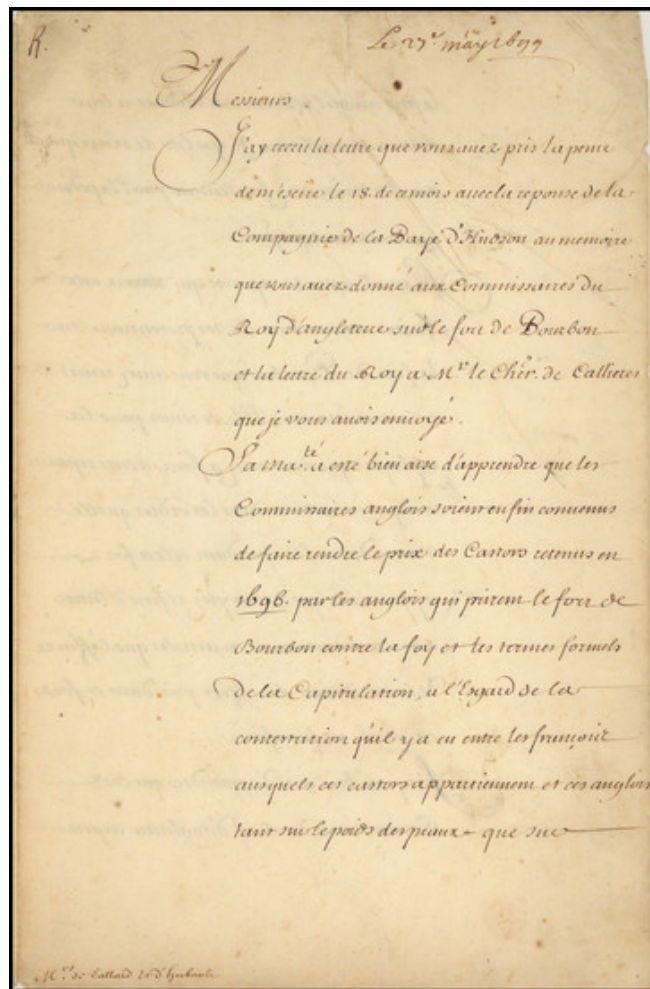 R.
Le 27e may 1699
Messieurs
J'ay receu la lettre que vous avez pris la peine
de m'escrire le 18. de ce mois avec la reponse de la
Compagnie de la Baye d'Hudson au memoire
que vous avez donné aux Commissaires du
Roy d'angleterre sur le fort de Bourbon
et la lettre du Roy a Mr. le Cher. de Callieres
que je vous avois envoyé.
Sa Ma.té a esté bien aise d'apprendre que les
Commissaires anglois soient enfin convenus
de faire rendre le prix des Castors retenus en
1696. par les anglois qui prirent le fort de
Bourbon contre la foy et les termes formels
de la Capitulation, a l'Egard de la
contestation qu'il y a eu entre les françois
ausquels ces castors appartiennent et ces anglois
tant sur le poids des peaux que sur
Mrs. de Tallard et d'Herbault